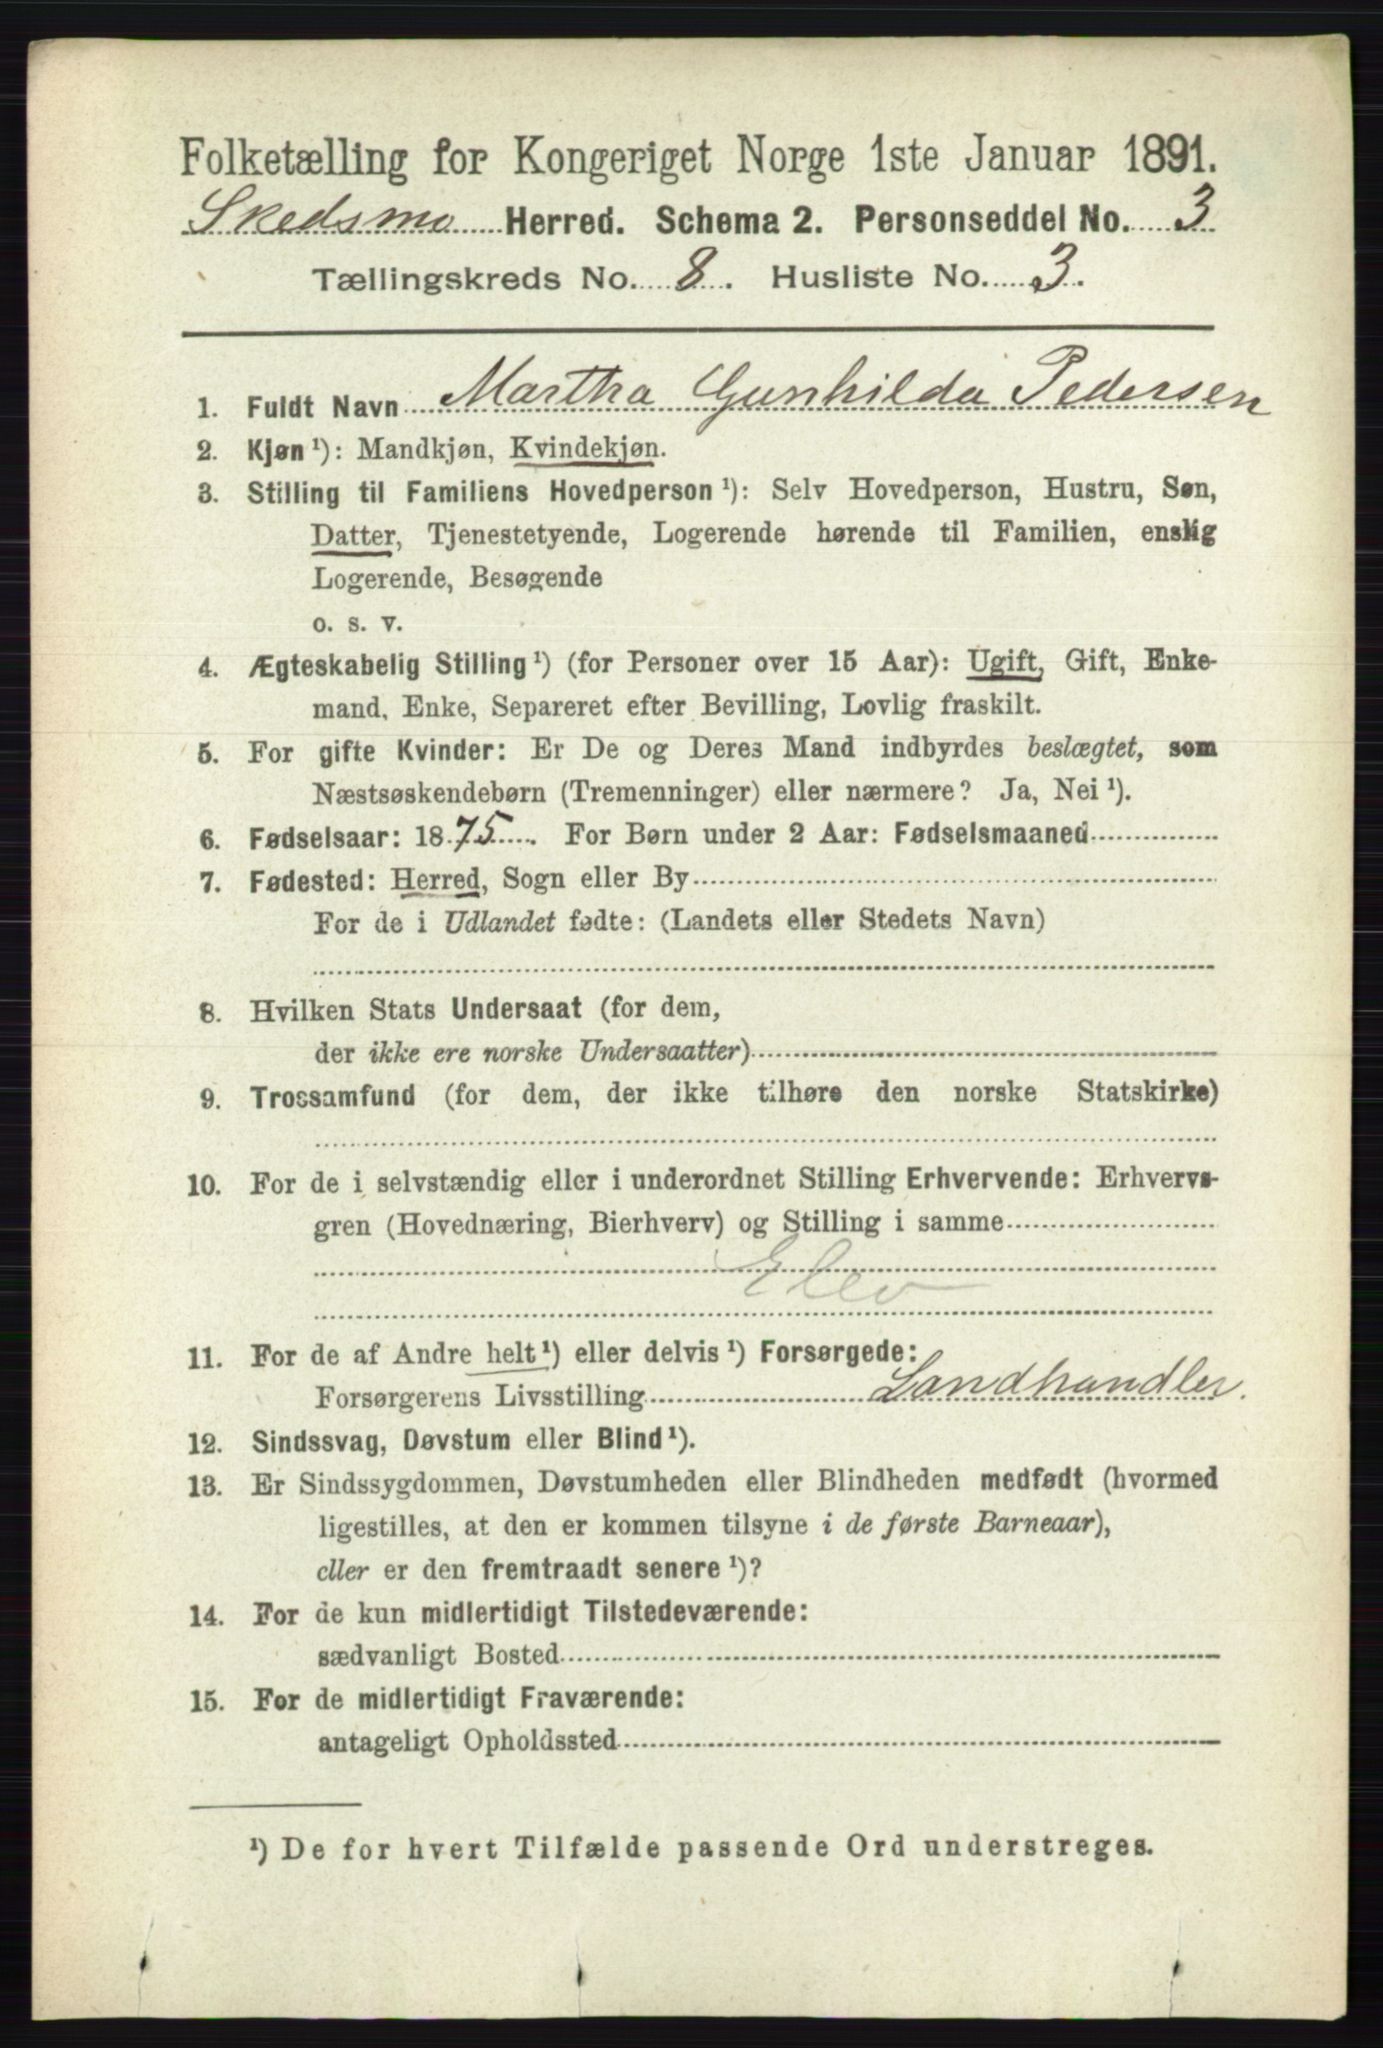 Folketælling for Kongeriget Norge 1ste Januar 1891.
Skedsmo Herred. Schema 2. Personseddel No. 3
Tællingskreds No. 8. Husliste No. 3.
1. Fuldt Navn Martha Gunhilda Pedersen
2. Kjøn ¹): Mandkjøn, Kvindekjøn.
3. Stilling til Familiens Hovedperson ¹): Selv Hovedperson, Hustru, Søn,
Datter, Tjenestetyende, Logerende hørende til Familien, enslig
Logerende, Besøgende
o. s. v.
4. Ægteskabelig Stilling ¹) (for Personer over 15 Aar): Ugift, Gift, Enke-
mand, Enke, Separeret efter Bevilling, Lovlig fraskilt.
5. For gifte Kvinder: Er De og Deres Mand indbyrdes beslægtet, som
Næstsøskendebørn (Tremenninger) eller nærmere? Ja, Nei ¹).
6. Fødselsaar: 1875. For Børn under 2 Aar: Fødselsmaaned
7. Fødested: Herred, Sogn eller By
For de i Udlandet fødte: (Landets eller Stedets Navn)
8. Hvilken Stats Undersaat (for dem,
der ikke ere norske Undersaatter)
9. Trossamfund (for dem, der ikke tilhøre den norske Statskirke)
10. For de i selvstændig eller i underordnet Stilling Erhvervende: Erhvervs-
gren (Hovednæring, Bierhverv) og Stilling i samme
Elev
11. For de af Andre helt ¹) eller delvis ¹) Forsørgede:
Forsørgerens Livsstilling Landhandler.
12. Sindssvag, Døvstum eller Blind ¹).
13. Er Sindssygdommen, Døvstumheden eller Blindheden medfødt (hvormed
ligestilles, at den er kommen tilsyne i de første Barneaar),
eller er den fremtraadt senere ¹)?
14. For de kun midlertidigt Tilstedeværende:
sædvanligt Bosted
15. For de midlertidigt Fraværende:
antageligt Opholdssted
¹) De for hvert Tilfælde passende Ord understreges.